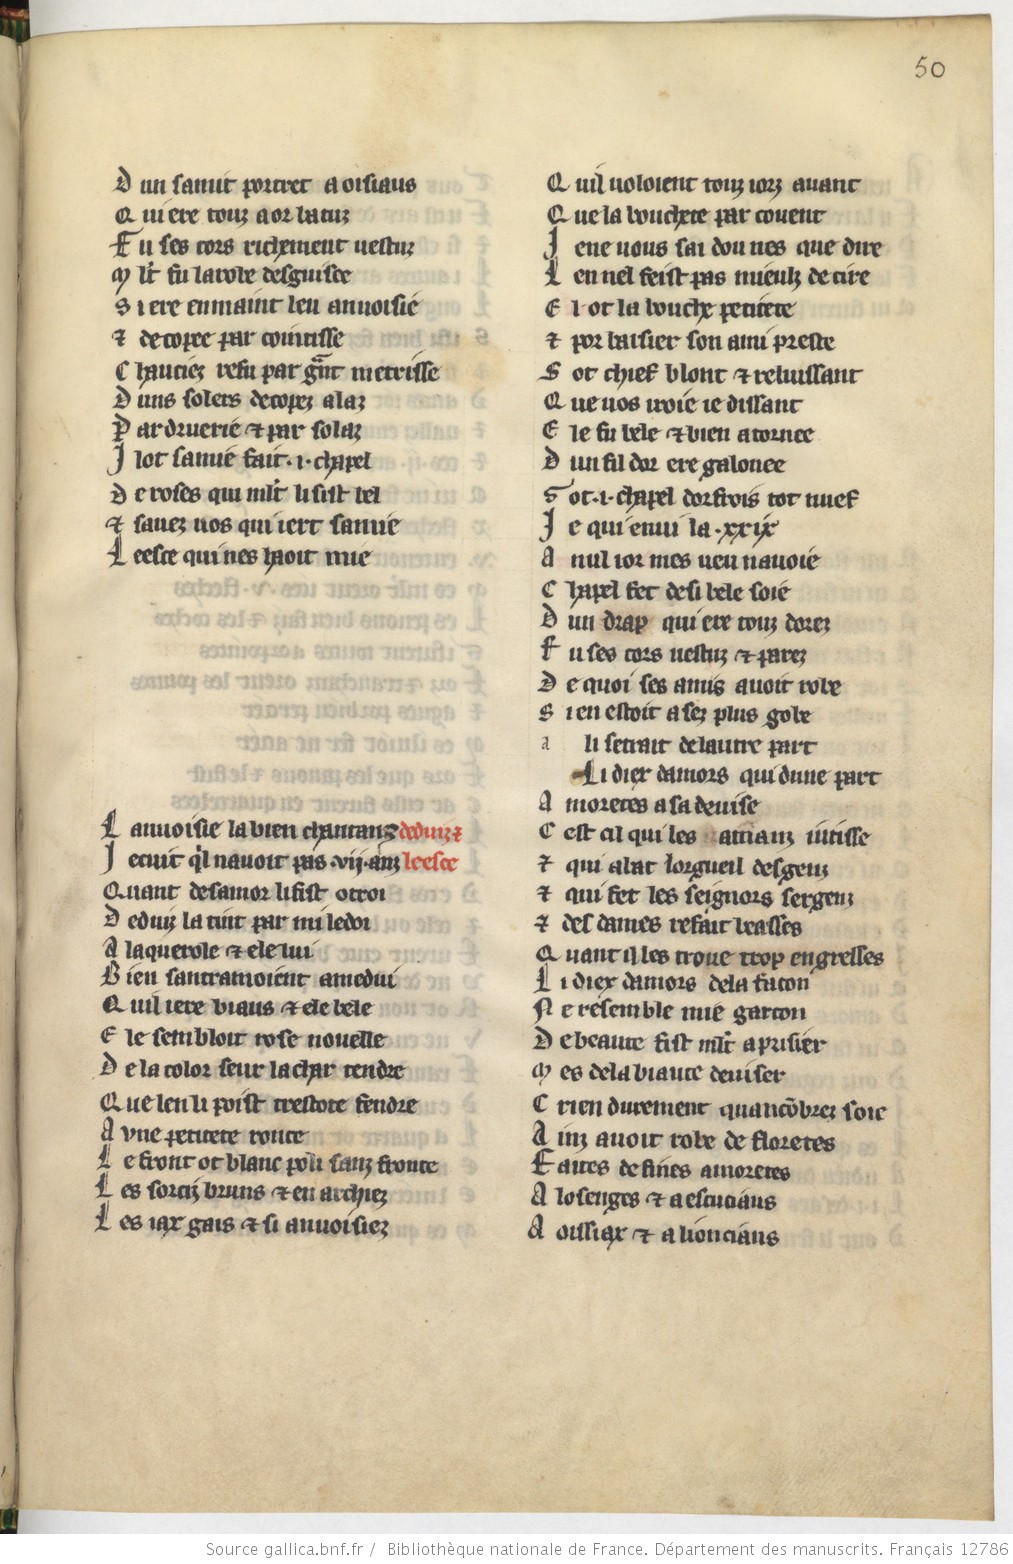 50
D un samit portret a oisiaus
Q ui ere touz a or batuz
F u ses cors richement vestuz
M lt fu la robe desguisee
S i ere en maint leu anvoisie
⁊ decopee par cointisse
C hauciez refu par gnt metrisse
D uns solers decopez a laz
P ar druerie ⁊ par solaz
I lot samie fait .i. chapel
D e roses qui mlt li sist bel
⁊ savez vos qui iert samie
L eesce qui nes haoit mie
L anvoisie la bien chantanz deduiz ⁊
I ecuit ql navoit pas .vij. anz leesce
Q uant de samor li fist otroi
D eduiz la tint par mi le doi
A la querole ⁊ ele lui
B ien santramoient amedui
Q uil iere biaus ⁊ ele bele
E le sembloit rose novelle
D e la color seur la char tendre
Q ue len li poist trestote fendre
A vne petitete ronce
L e front ot blanc poli sanz fronce
L es sorciz bruns ⁊ en archiez
L es iax gais ⁊ si anvoisiez
Q uil voloient touz iorz avant
Q ue la bouchete par covent
I e ne vous sai dou nes que dire
L en nel feist pas mieulz de cire
E l ot la bouche petitete
⁊ por baisier son ami preste
S ot chief blont ⁊ reluissant
Q ue vos iroie ie dissant
E le fu bele ⁊ bien atornee
D un fil dor ere galonee
S ot .i. chapel dorfrois tot nuef
I e qui en vi la .xxix
A nul ior mes veu navoie
C hapel fet de si bele soie
D un drap qui ere touz dorez
F u ses cors vestuz ⁊ parez
D e quoi ses amis avoit robe
S i en estoit asez plus gobe
a li se trait de lautre part
L i diex damors qui dune part
A moretes a sa devise
C est cil qui les iutisse
⁊ qui a bat lorgueil des genz
⁊ qui fet les seignors sergenz
⁊ des dames refait beasses
Q uant il les trove trop engresses
L i diex damors de la facon
N e resemble mie garcon
D e beaute fist mlt a prisier
M es de la biaute deviser
C rien durement quancobrez soie
A inz avoit robe de floretes
F aites de fines amoretes
A losenges ⁊ a escuciaus
A oissiax ⁊ a lionciaus
Source gallica.bnf.fr / Bibliothèque nationale de France. Département des manuscrits. Français 12786